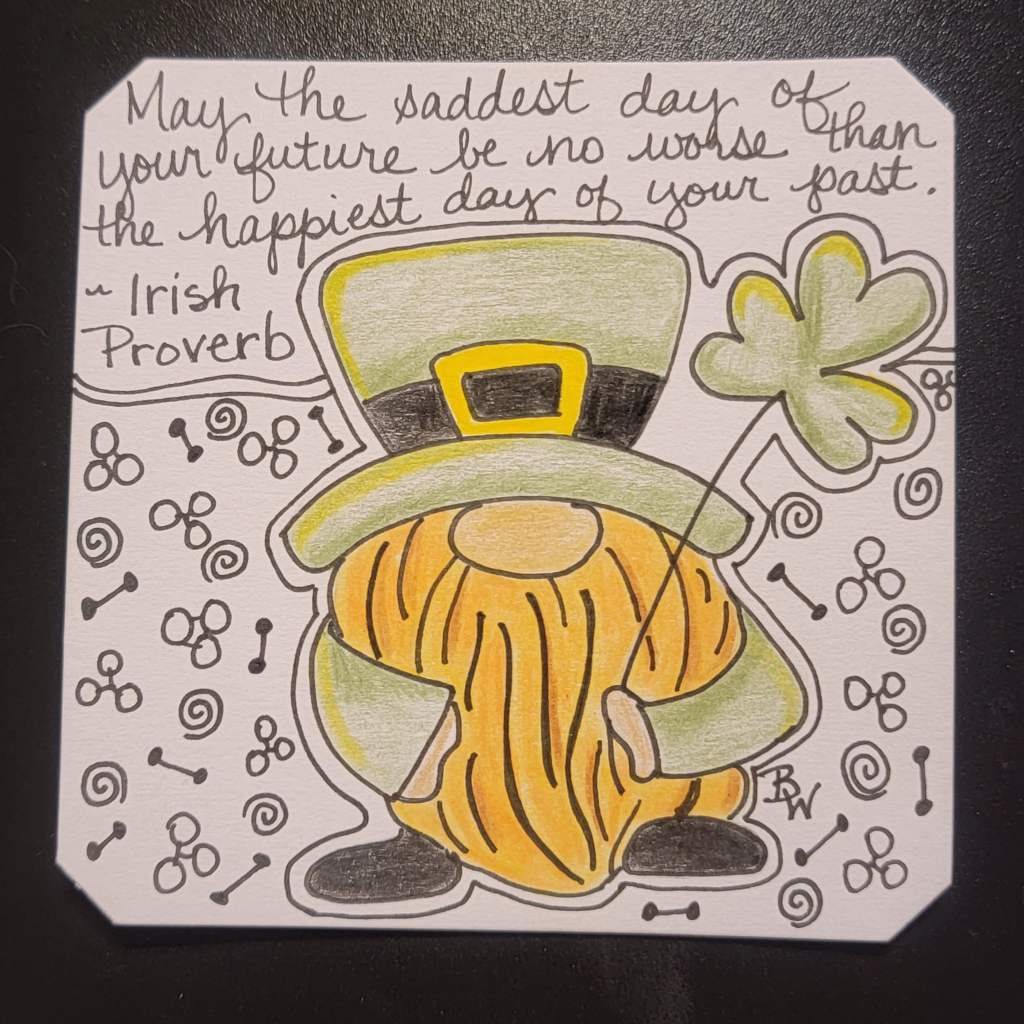 May the saddest day of
your future be no worse than
the happiest day of your past.
~ Irish
Proverb
BW